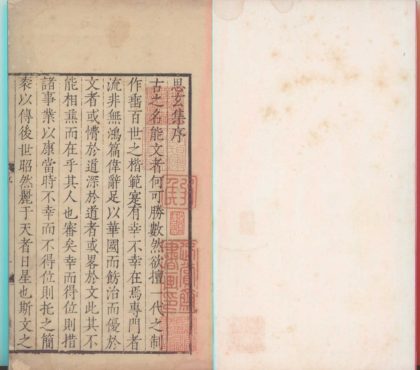 思玄集序
古之名能文者何可勝數然欲擅一代之制
作垂百世之楷範寔有幸不幸在焉專門者
流非無鴻篇偉辭足以華國而飾治而優於
文者或懵於道深於道者或畧於文此其不
能相兼而在乎其人也審矣幸而得位則措
諸事業以康當時不幸而不得位則托之簡
袠以得後世昭然麗于天者日星也斯文之